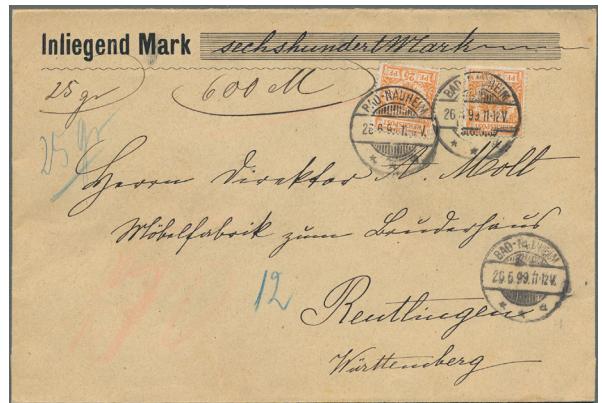 Inliegend Mark sechshundert Mark
25 gr 600 M
25 gr
BAD-NAUHEIM
26.6.99.11-12V.
BAD-NAUHEIM
26.6.99.11-12V.
Herrn Direktor A. Molt
Möbelfabrik zum Bruderhaus
BAD-NAUHEIM
26.6.99.11-12V.
12
Reutlingen
Württemberg